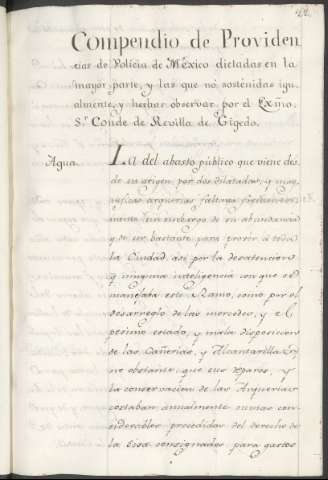 Compendio de Providen
cias de Policia de México dictadas en la
mayor parte, y las que no sostenidas igu
almente, y hechas observar por el Exmo.
Sr. Conde de Revilla de Gigedo.
Agua.
La del abasto público que viene des
de su origen por dos dilatadas, y mag
nificas arquerias faltava frecuentem
ente sin embargo de su abundancia
y de ser bastante para proveer à toda
la Ciudad, asi por la desatencion
y ninguna inteligencia con que se
manejaba este Ramo, como por el
desarreglo de las mercedes, y el
pesimo estado, y mala disposicion
de las Cañerias, y Alcantarillas
no obstante que sus reparos, y
la conservacion de las Arquerias
costaban anualmente sumas con
siderables procedidas del derecho de
la Sisa consignadas para gastos